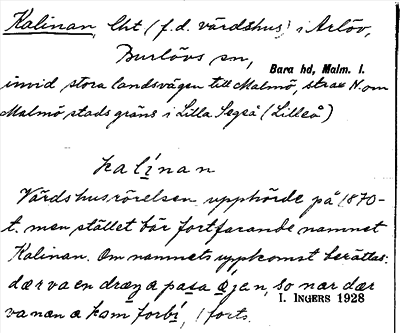 Kalinan, Lht (f.d. värdshus) i Arlöv,
Burlövs sn,
Bara hd, Malm. l.
invid stora landsvägen till Malmö, strax N. om
Malmö stads gräns i Lilla Segeå (Lilleå)
kalínan
Värdshusrörelsen upphörde på 1870-
t. men stället bär fortfarande namnet
Kalinan. Om namnets uppkomst berättas:
dær va en dræŋ a pasa ä jen, so nær dær
va næn a kom forbi, (forts.
I. INGERS 1928